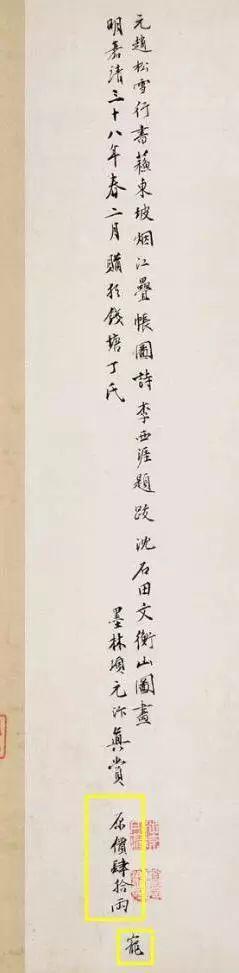 元趙松雪行書蘇東坡烟江疊帳圖詩李西涯題跋沈石田文衡山圖畫
明嘉靖三十八年春二月購於錢塘丁氏
墨林項元汴真賞
原價肆拾兩
寵